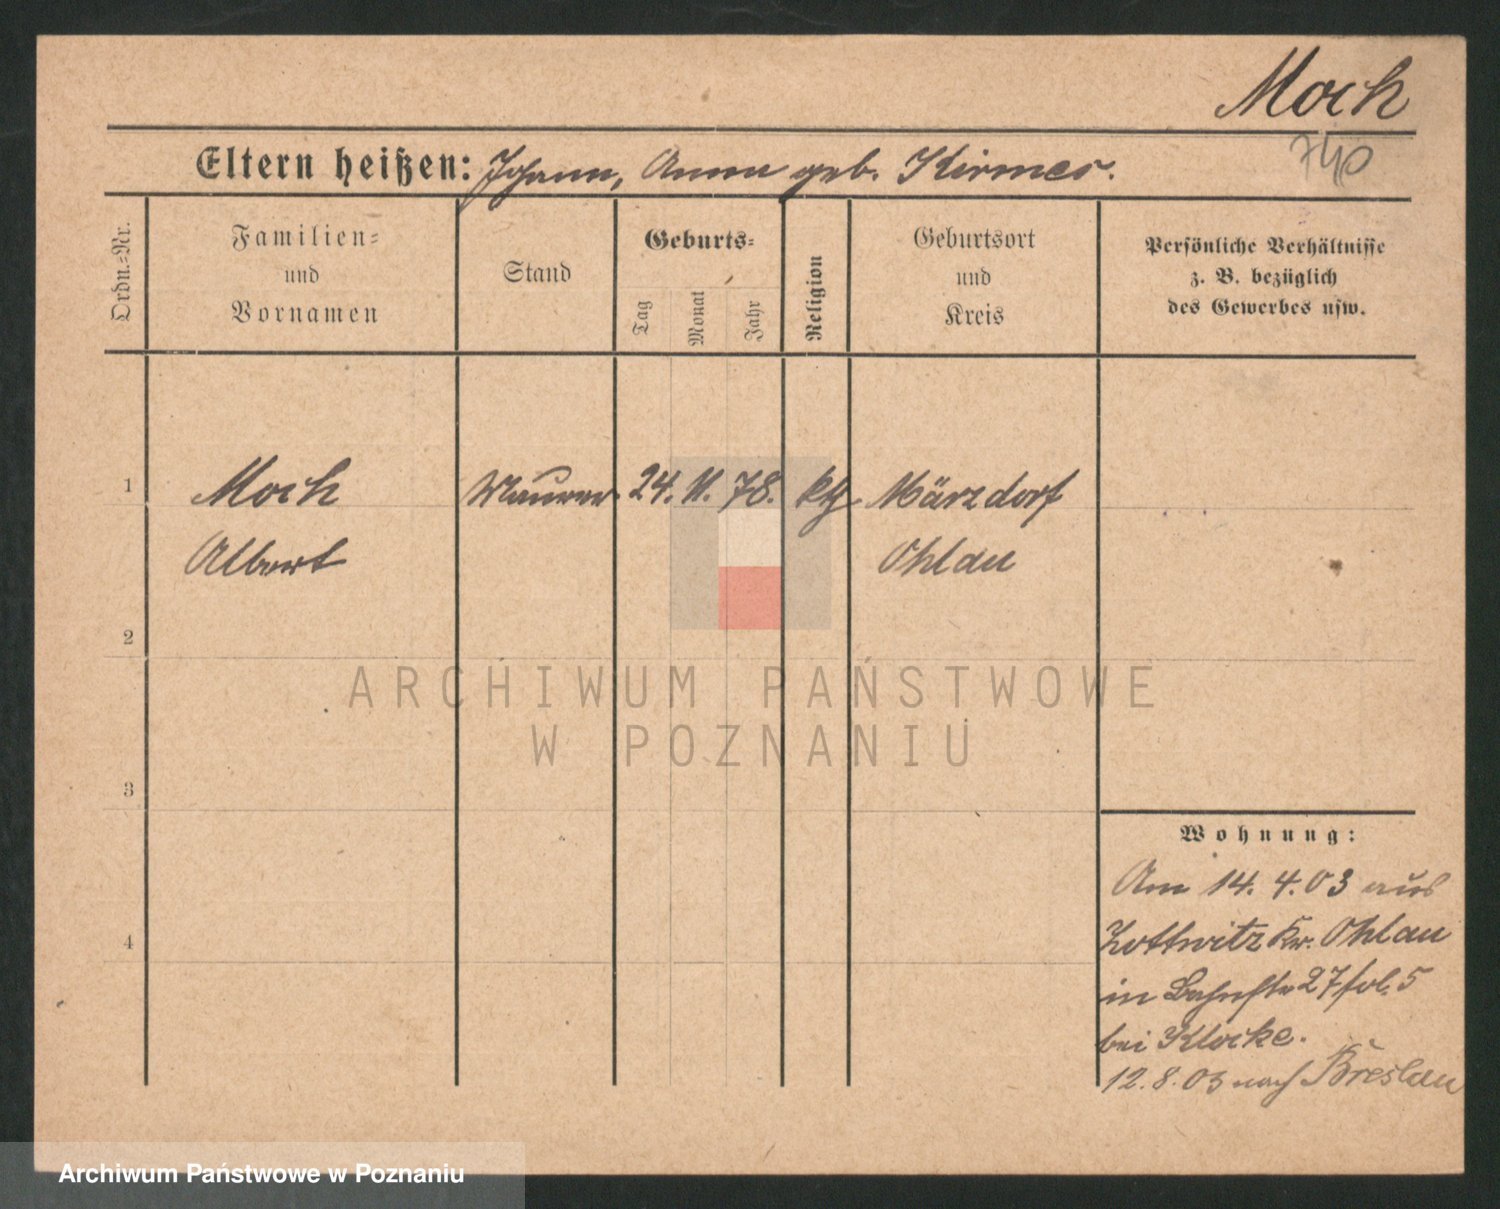 Moch
740
Eltern heißen: Johann, Anna geb. Kirmes.
Ordn.=Nr.
Familien=
und
Vornamen
Stand
Geburts=
Tag
Monat
Jahr
Religion
Geburtsort
und
Kreis
Persönliche Verhältnisse
z. B. bezüglich
des Gewerbes usw.
1 Moch Maurer 24. 11. 78. kth Märzdorf
Albert Ohlau
2
ARCHIWUM PAŃSTWOWE
W POZNANIU
3
Wohnung:
Am 14. 4. 03 aus
Zottwitz Kr. Ohlau
4
in Bahnhstr 27 fol. 5
bei Klocke.
12. 8. 03 nach Breslau
Archiwum Państwowe w Poznaniu